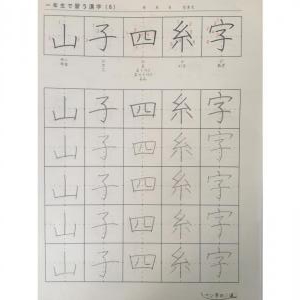 一年生で習う漢字(6)
山 子 四 糸 字
山 子 四 糸 字
山 子 四 糸 字
山 子 四 糸 字
山 子 四 糸 字
山 子 四 糸 字